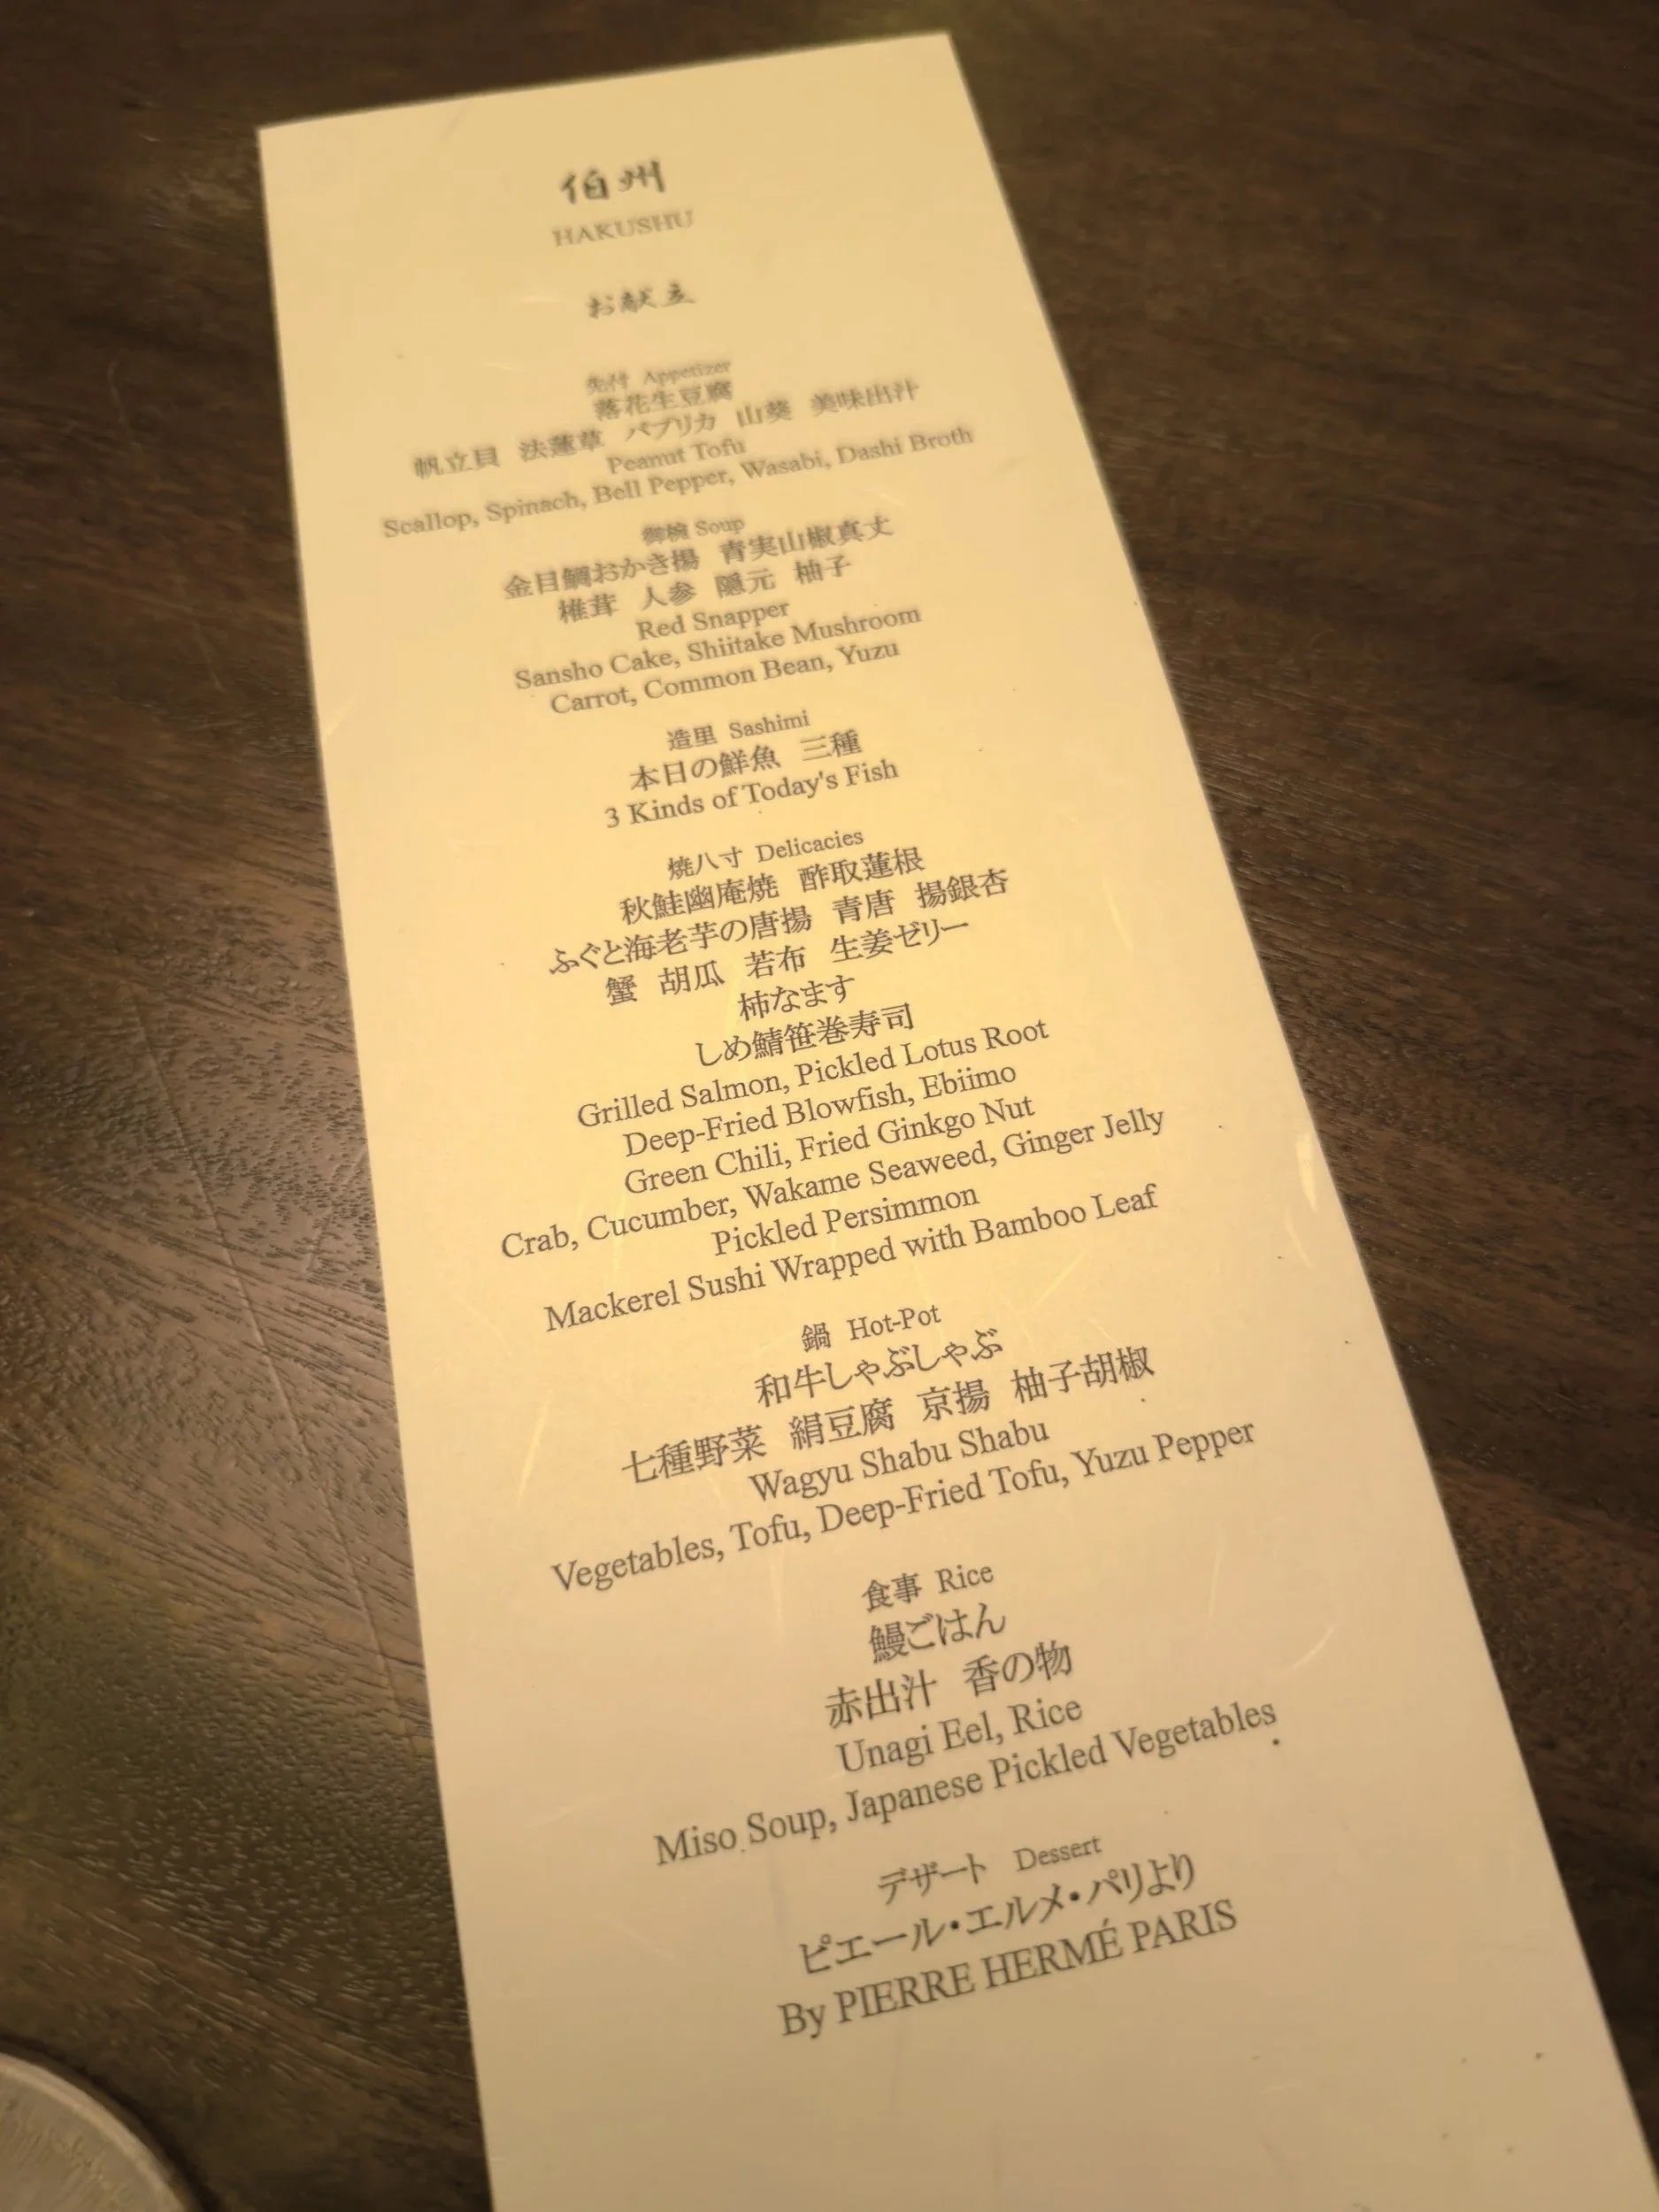 伯州
HAKUSHU
お献立
先付 Appetizer
落花生豆腐
帆立貝 法蓮草 パプリカ 山葵 美味出汁
Peanut Tofu
Scallop, Spinach, Bell Pepper, Wasabi, Dashi Broth
御椀 Soup
金目鯛おかき揚 青実山椒真丈
椎茸 人参 隠元 柚子
Red Snapper
Sansho Cake, Shiitake Mushroom
Carrot, Common Bean, Yuzu
造里 Sashimi
本日の鮮魚 三種
3 Kinds of Today's Fish
焼八寸 Delicacies
秋鮭幽庵焼 酢取蓮根
ふぐと海老芋の唐揚 青唐 揚銀杏
蟹 胡瓜 若布 生姜ゼリー
柿なます
しめ鯖笹巻寿司
Grilled Salmon, Pickled Lotus Root
Deep-Fried Blowfish, Ebiimo
Green Chili, Fried Ginkgo Nut
Crab, Cucumber, Wakame Seaweed, Ginger Jelly
Pickled Persimmon
Mackerel Sushi Wrapped with Bamboo Leaf
鍋 Hot-Pot
和牛しゃぶしゃぶ
七種野菜 絹豆腐 京揚 柚子胡椒
Wagyu Shabu Shabu
Vegetables, Tofu, Deep-Fried Tofu, Yuzu Pepper
食事 Rice
鰻ごはん
赤出汁 香の物
Unagi Eel, Rice
Miso Soup, Japanese Pickled Vegetables
デザート Dessert
ピエール・エルメ・パリより
By PIERRE HERMÉ PARIS